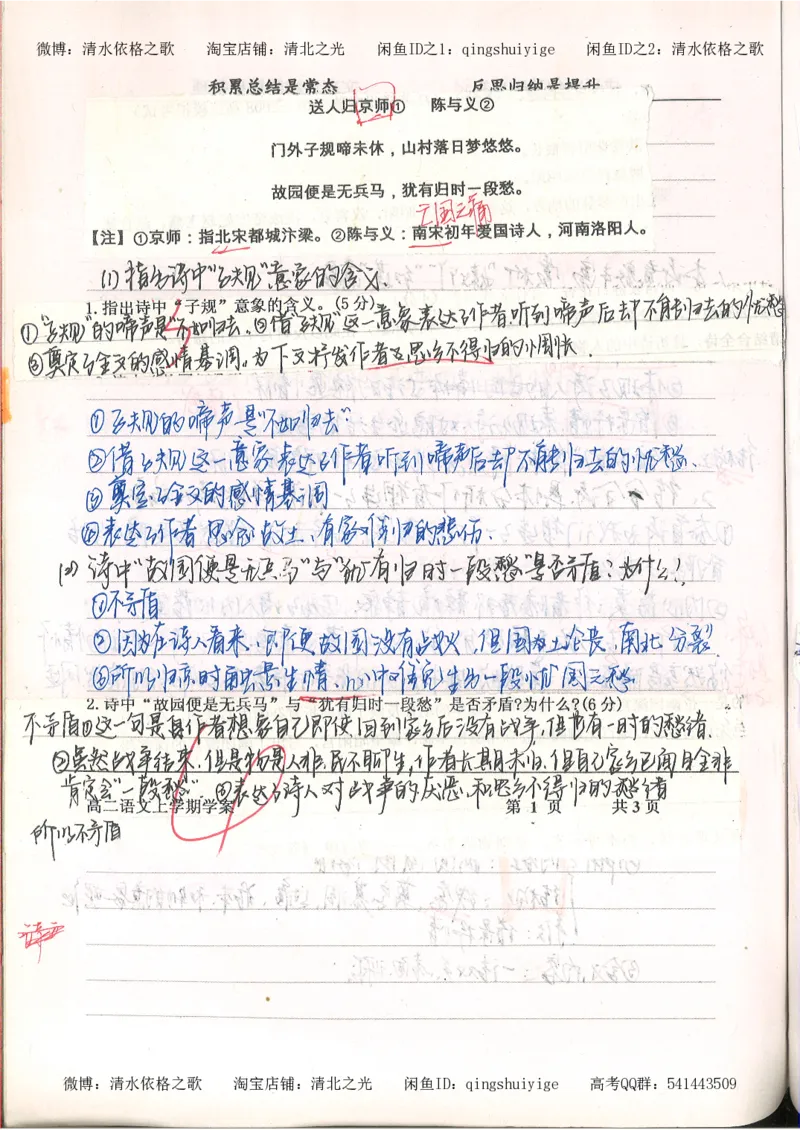 微博：清水依格之歌 淘宝店铺：清北之光 闲鱼ID之1：qingshuiyige 闲鱼ID之2：清水依格之歌
积累总结是常态 反思归纳是提升
送人归京师① 陈与义②
门外子规啼未休，山村落日梦悠悠。
故园便是无兵马，犹有归时一段愁。
亡国之痛
【注】①京师：指北宋都城汴梁。②陈与义：南宋初年爱国诗人，河南洛阳人。
(1)指出诗中"子规"意象的含义.
1.指出诗中"子规"意象的含义。(5分)
①"子规"的啼声是"不如归去.②借"子规"这一意象表达了作者听到啼声后去却不能归去的忧愁
③奠定了全文的感情基调.为下文抒发作者思乡不得归的惆怅.
①子规的啼声是"不如归去"
②借子规这一意象表达了作者听到啼声后去却不能归去的忧愁.
③奠定了全文的感情基调
④表达了作者思念故土,有家难归的悲伤.
(2)诗中"故园便是无兵马"与"犹有归时一段愁"是否矛盾?为什么?
①不矛盾
②因为在诗人看来,即便故园没有战火,但国土沦丧,南北分裂.
③所以归京时面景生情,心中仍免生为一段忧国之愁.
2.诗中"故园便是无兵马"与"犹有归时一段愁"是否矛盾?为什么?(6分)
不矛盾①这一句是具作者想象自己即使回到家乡后没有战争,但也有一时的愁绪.
②虽然战争结束,但是物是人非,民不聊生,作者长期未归,但自己家乡已面目全非
肯定会"一段愁".③表达了诗人对战争的厌恶,和思乡不得归的愁绪
高二语文上学期学案 第 1 页 共 3 页
所以不矛盾
微博：清水依格之歌 淘宝店铺：清北之光 闲鱼ID：qingshuiyige 高考QQ群：541443509